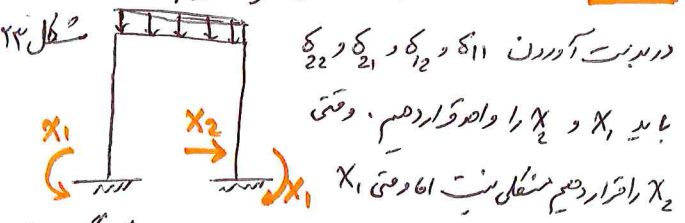 شکل ۲۳
در بدست آوردن δ11 و δ12 و δ21 و δ22
باید X1 و X2 را واحد قرار دهیم. وقتی
X2 را قرار دهیم مشکلی نیست اما وقتی X1
X1
X2
X1